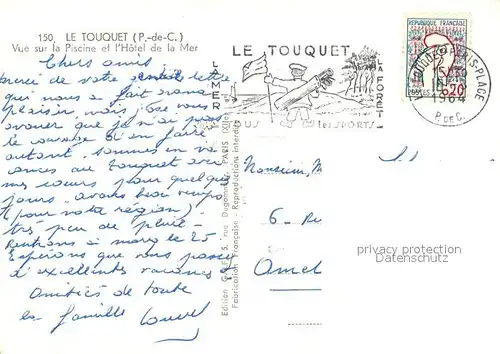 150. LE TOUQUET (P.-de-C.)
Vue sur la Piscine et l'Hôtel de la Mer
Chers amis
merci de votre lettre
qui nous a fait grand
plaisir, mais
avouer que je n'ai pas
le courage d'en faire
autant, sommes en va-
ances au Touquet avec
mes sœurs pour quelque
jours. avons beau temps
(pour notre région)
très peu de pluie -
Rentrons à le 25.
Espérons que vous passez
d'excellentes vacances
Amitiés de toute
la famille
LE TOUQUET
LA MER
LA FORÊT
TOUS les SPORTS
REPUBLIQUE FRANÇAISE
POSTES
0,20
PARIS-PLAGE
15
1964
P. DE C.
Edition GABY, 5, rue Dugommier, PARIS (XIIe)
Fabrication Française - Reproductions interdites
Monsieur, M
6 - Ru
Amel
privacy protection
www.delcampe.net